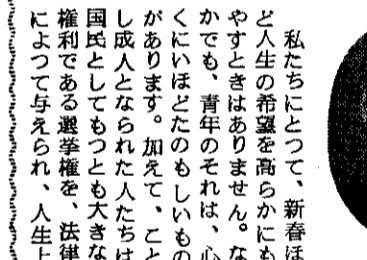 私たちにとつて、新春ほ
ど人生の希望を高らかにも
やすときはありません。な
かでも、青年のそれは、心
くにいほどたのもしいもの
があります。加えて、こと
し成人となられた人たちは
国民としてもつとも大きな
権利である選挙権を、法律
によつて与えられ、人生上